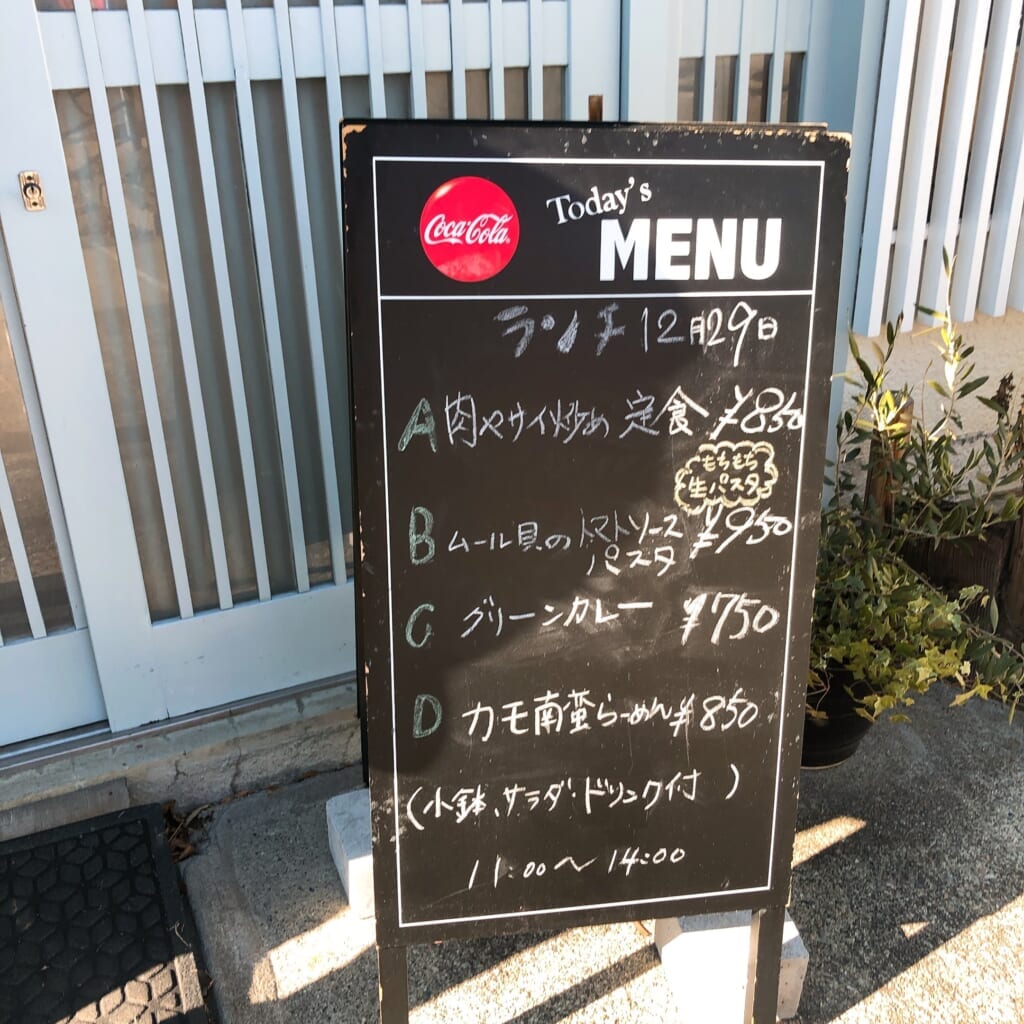 Coca-Cola
Today's
MENU
ランチ 12月29日
A 肉ヤサイ炒め 定食 ¥850
もちもち
生パスタ
B ムール貝のトマトソース ¥950
パスタ
C グリーンカレー ¥750
D カモ南蛮らーめん ¥850
(小鉢、サラダ・ドリンク付 )
11:00〜14:00